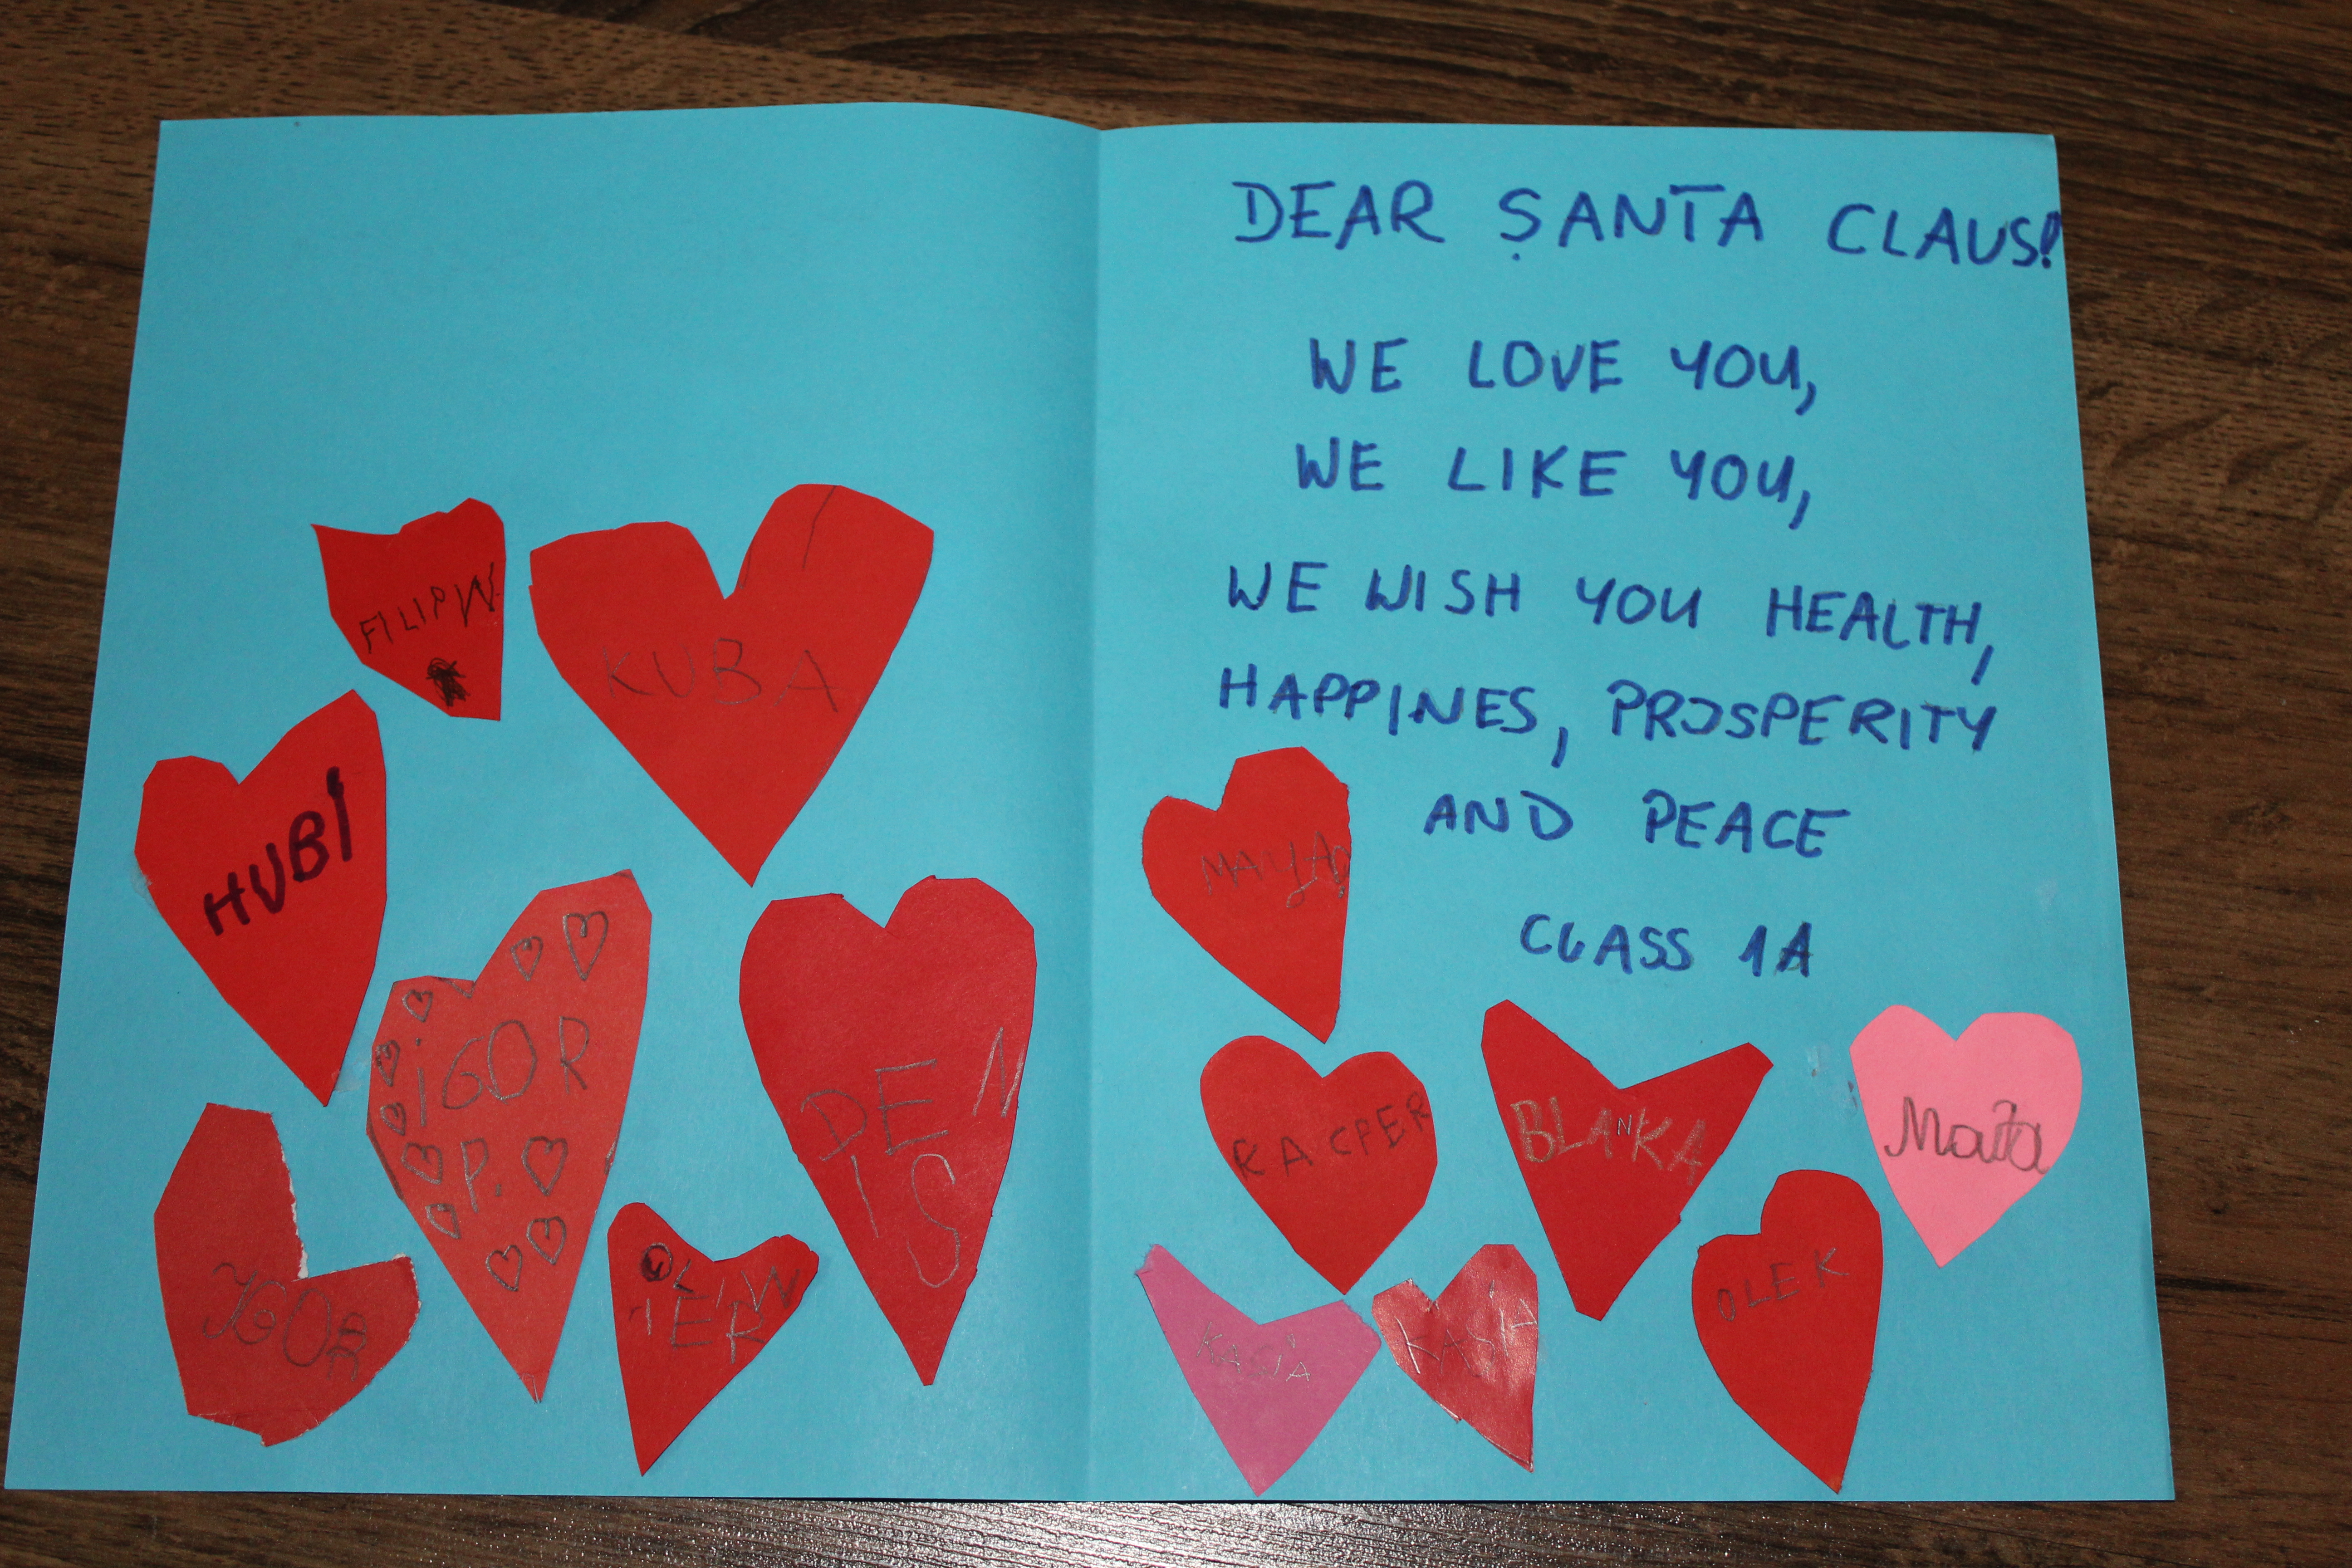 FILIP W.
KUBA
HUBI
IGOR
P.
DEN
IS
IGOR
OLIW
IER
DEAR SANTA CLAUS!
WE LOVE YOU,
WE LIKE YOU,
WE WISH YOU HEALTH,
HAPPINES, PROSPERITY
AND PEACE
CLASS 1A
KACPER
BLANKA
Maja
OLEK
KASIA
KASIA